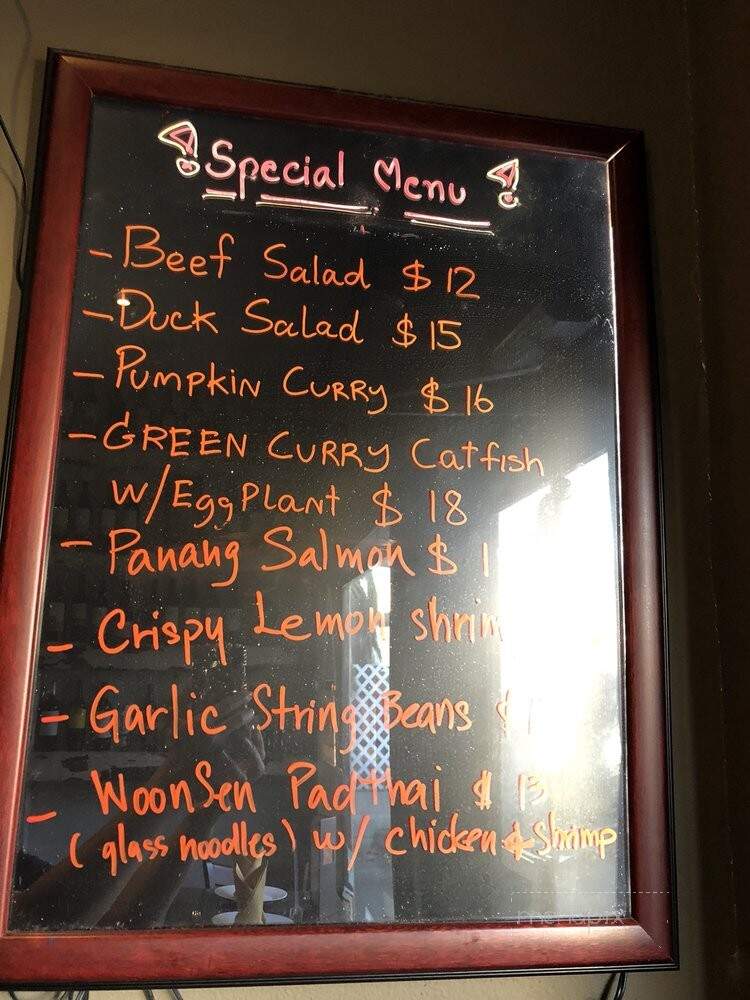 Special Menu
- Beef Salad $ 12
- Duck Salad $ 15
- PUMPKIN CURRY $ 16
- GREEN CURRY Catfish
W/ EggPLANT $ 18
- Panang Salmon $
- Crispy Lemon
- Garlic String Beans $
- WoonSen Padthai $ 13
(glass noodles) w/ chicken & Shrimp